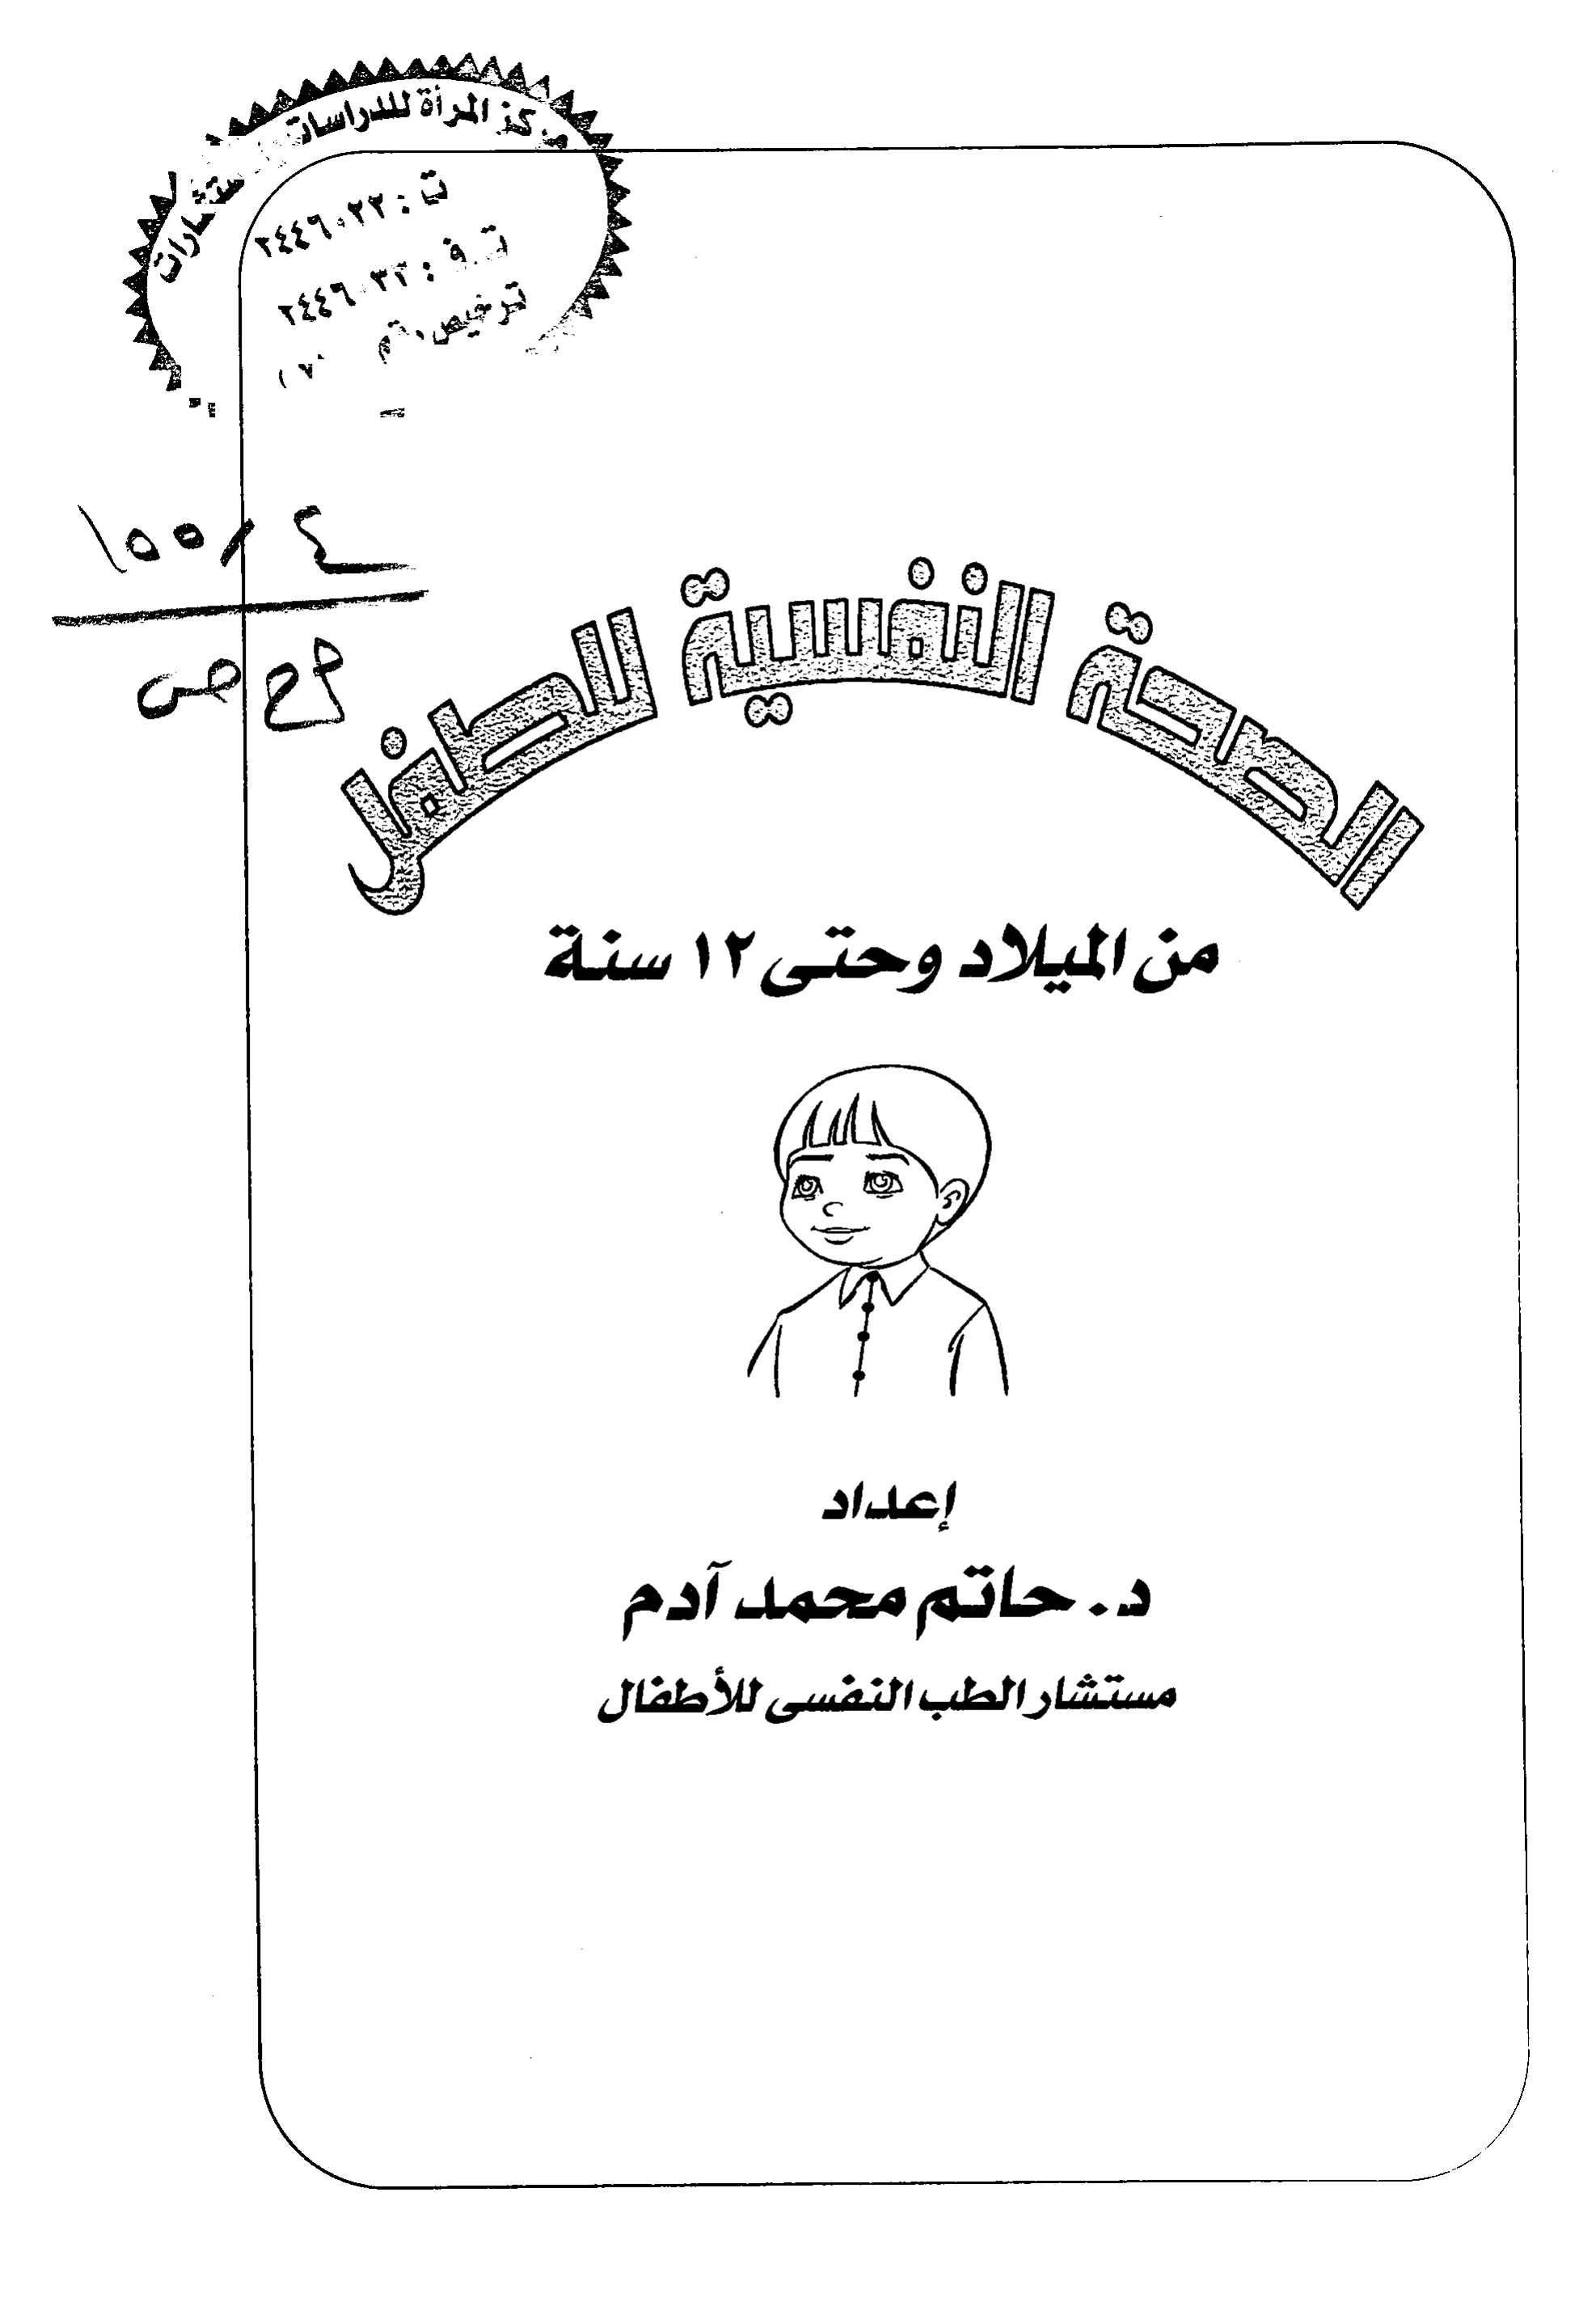 مركز المرأة للدراسات
ت : ٢٤٤٦٠٢٢
ت.ف : ٢٤٤٦٠٣٣
ترخيص رقم
١٥٥٫٤
ص
الصحة النفسية للطفل
من الميلاد وحتى ١٢ سنة
إعداد
د. حاتم محمد آدم
مستشار الطب النفسى للأطفال